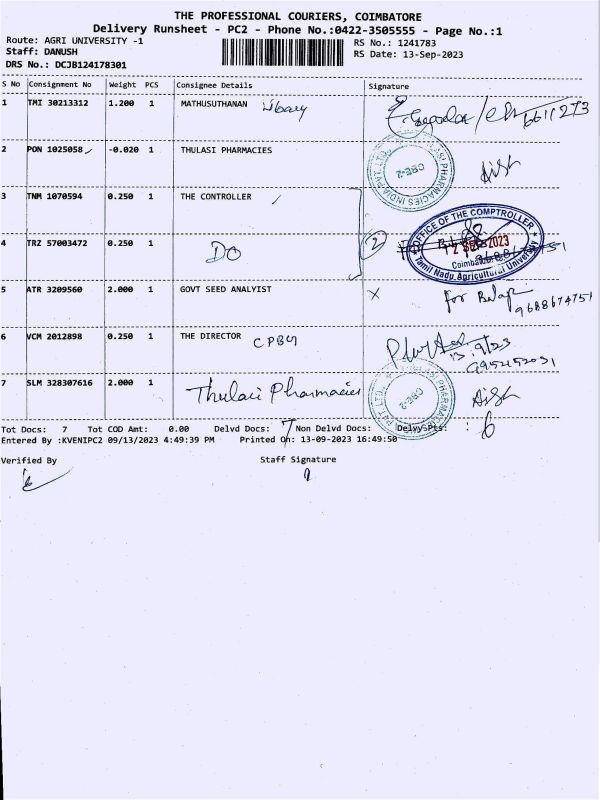 THE PROFESSIONAL COURIERS, COIMBATORE
Delivery Runsheet - PC2 - Phone No.:0422-3505555 - Page No.:1
Route: AGRI UNIVERSITY -1
RS No.: 1241783
Staff: DANUSH
RS Date: 13-Sep-2023
DRS No.: DCJB124178301
S No Consignment No Weight PCS Consignee Details Signature
1 TMI 30213312 1.200 1 MATHUSUTHANAN
2 PON 1025058 -0.020 1 THULASI PHARMACIES
3 TNM 1070594 0.250 1 THE CONTROLLER
4 TRZ 57003472 0.250 1 DO 2
OFFICE OF THE COMPTROLLER
12 SEP 2023
Coimbatore
Tamil Nadu Agricultural University
5 ATR 3209560 2.000 1 GOVT SEED ANALYIST X for Balaji
9688674751
6 VCM 2012898 0.250 1 THE DIRECTOR CPBG
13.9/23
9952152031
7 SLM 328307616 2.000 1 Thulasi Pharmacies
PHARMACIES INDIA PVT. LTD.
CBE-2
Tot Docs: 7 Tot COD Amt: 0.00 Delvd Docs: 7 Non Delvd Docs: Delvy Pts: 6
Entered By :KVENIPC2 09/13/2023 4:49:39 PM Printed On: 13-09-2023 16:49:50
Verified By Staff Signature